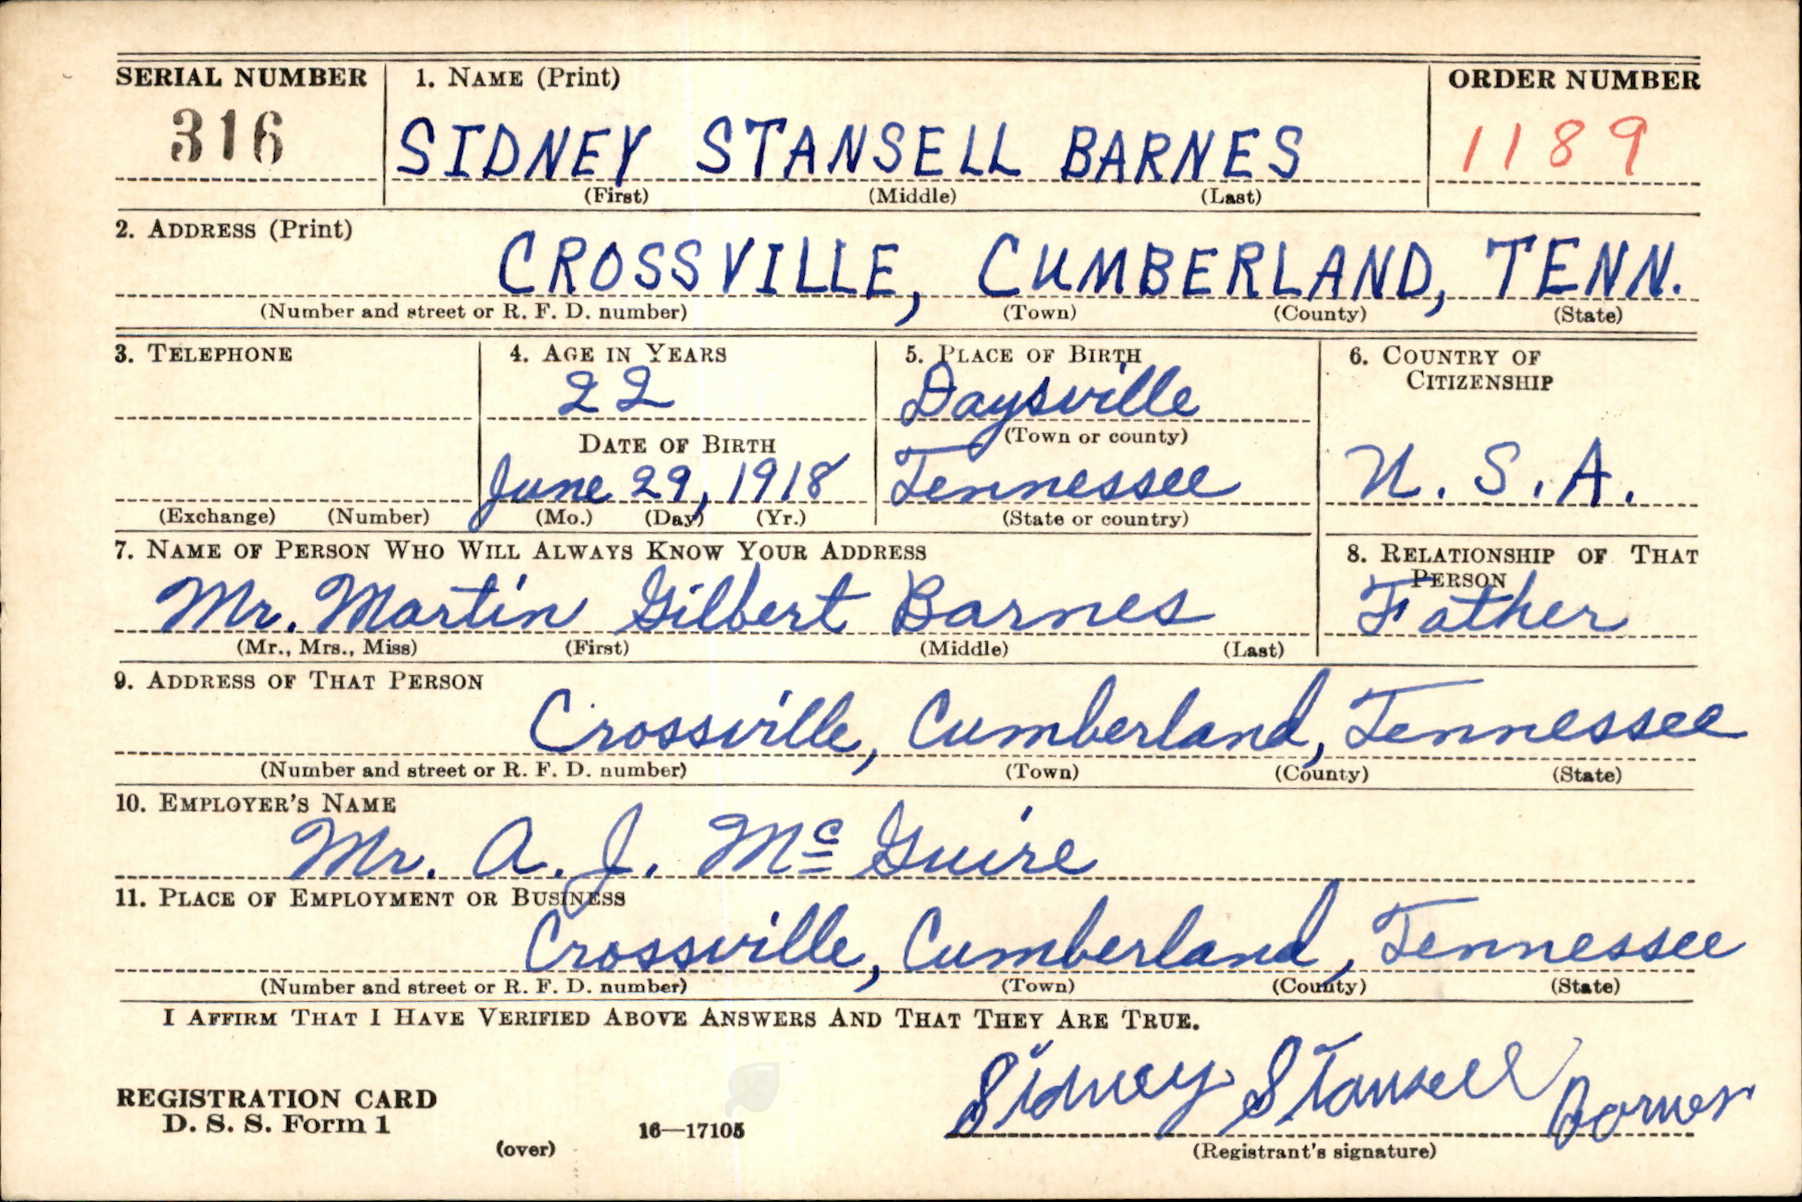 SERIAL NUMBER 1. NAME (Print) ORDER NUMBER
316 SIDNEY STANSELL BARNES 1189
(First) (Middle) (Last)
2. ADDRESS (Print)
CROSSVILLE, CUMBERLAND, TENN.
(Number and street or R. F. D. number) (Town) (County) (State)
3. TELEPHONE 4. AGE IN YEARS 5. PLACE OF BIRTH 6. COUNTRY OF
CITIZENSHIP
22 Daysville
DATE OF BIRTH (Town or county)
June 29, 1918 Tennessee U. S. A.
(Exchange) (Number) (Mo.) (Day) (Yr.) (State or country)
7. NAME OF PERSON WHO WILL ALWAYS KNOW YOUR ADDRESS 8. RELATIONSHIP OF THAT
PERSON
Mr. Martin Gilbert Barnes Father
(Mr., Mrs., Miss) (First) (Middle) (Last)
9. ADDRESS OF THAT PERSON
Crossville, Cumberland, Tennessee
(Number and street or R. F. D. number) (Town) (County) (State)
10. EMPLOYER'S NAME
Mr. A. J. McGuire
11. PLACE OF EMPLOYMENT OR BUSINESS
Crossville, Cumberland, Tennessee
(Number and street or R. F. D. number) (Town) (County) (State)
I AFFIRM THAT I HAVE VERIFIED ABOVE ANSWERS AND THAT THEY ARE TRUE.
Sidney Stansell Barnes
REGISTRATION CARD
D. S. S. Form 1
(over) 16—17105 (Registrant's signature)